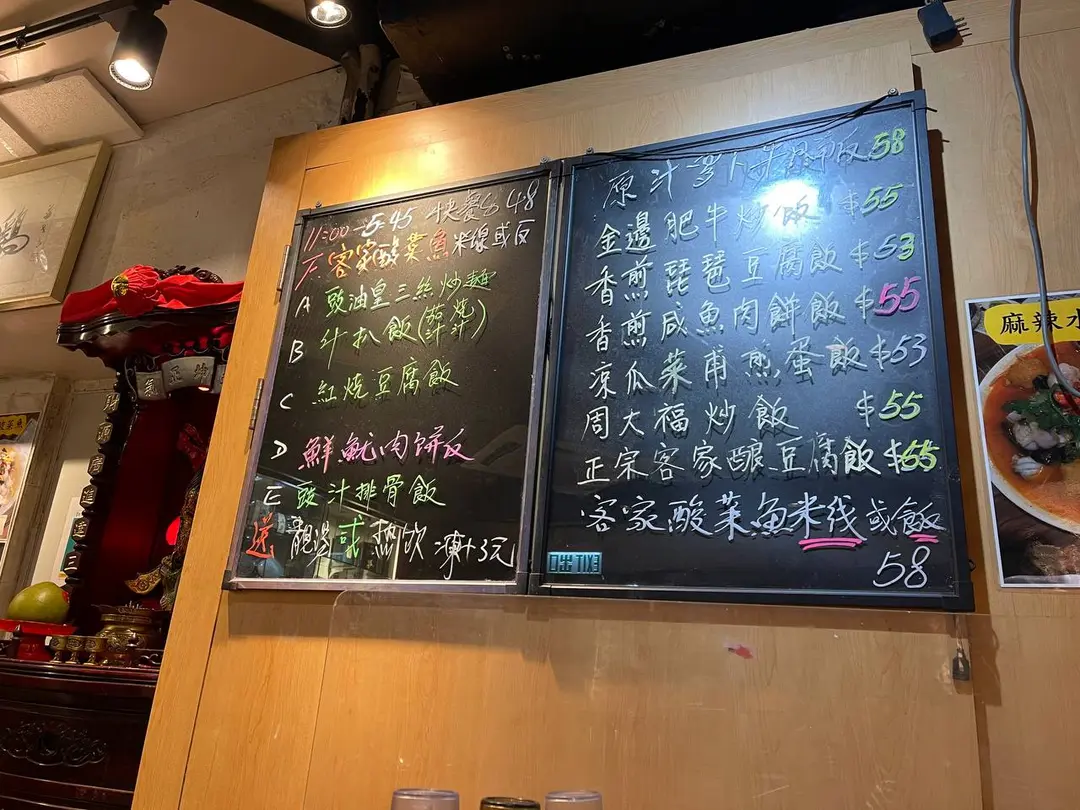 11:00-5:45 快餐$48
F. 客家酸菜魚米線或反
A 豉油皇三絲炒麵
B 斗扒飯(茄汁 燒汁)
C 紅燒豆腐飯
D 鮮魷肉饼反
E 豉汁排骨飯
送 靚湯或热饮 凍+3元
原汁 58
金邊肥牛炒飯 $55
香煎琵琶豆腐飯 $53
香煎咸魚肉餅飯 $55
凉瓜菜甫煎蛋飯 $53
周大福炒飯 $55
正宗客家酿豆腐飯 $55
客家酸菜魚米线或飯
58
麻辣水